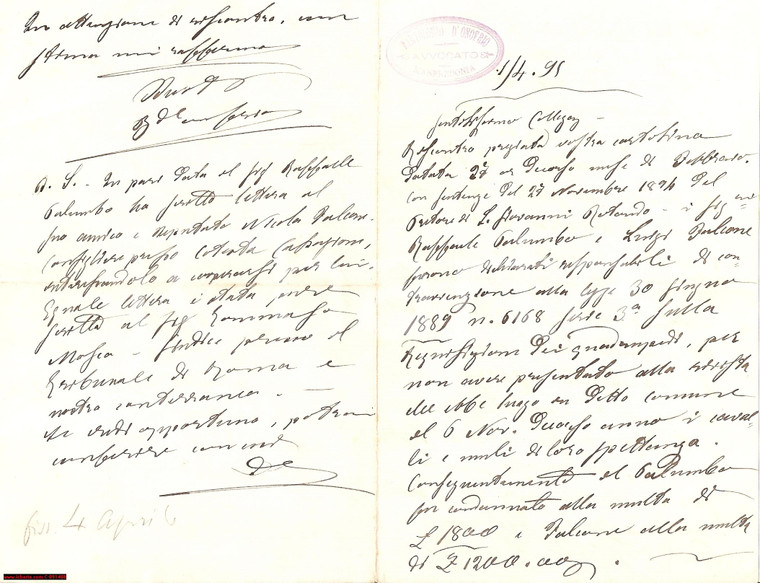 In attenzione di riscontro, con
stima mi rassegno
P. S. - In pari data il Sig Raffaele
Palumbo ha scritto lettera al
suo amico e Deputato Nicola Falcone
Consigliere presso cotesta Cassazione,
interessandolo a cooperarsi per lui.
Eguale lettera è stata pure
scritta al Sig Tommaso
Mosca - Giudice presso il
Tribunale di Roma e
nostro conterraneo. -
Se crede opportuno, potrà
conferire con essi
4 Aprile
AVVOCATO
1/4. 95
Gentilissimo Collega -
Riscontro pregiata vostra cartolina
datata 27 or decorso mese di Febbraio.
Con sentenza del 27 Novembre 1894 del
Pretore di S. Giovanni Rotondo - i Sig.ri
Raffaele Palumbo e Luigi Falcone
furono dichiarati responsabili di con-
travvenzione alla legge 30 Giugno
1889 n. 6168 serie 3a sulla
Requisizione dei quadrupedi, per
non avere presentato alla rivista
che ebbe luogo in detto comune
il 6 Nov. decorso anno i caval-
li e muli di loro spettanza.
Conseguentemente il Palumbo
fu condannato alla multa di
£ 1800 e Falcone alla multa
di £ 1200.00